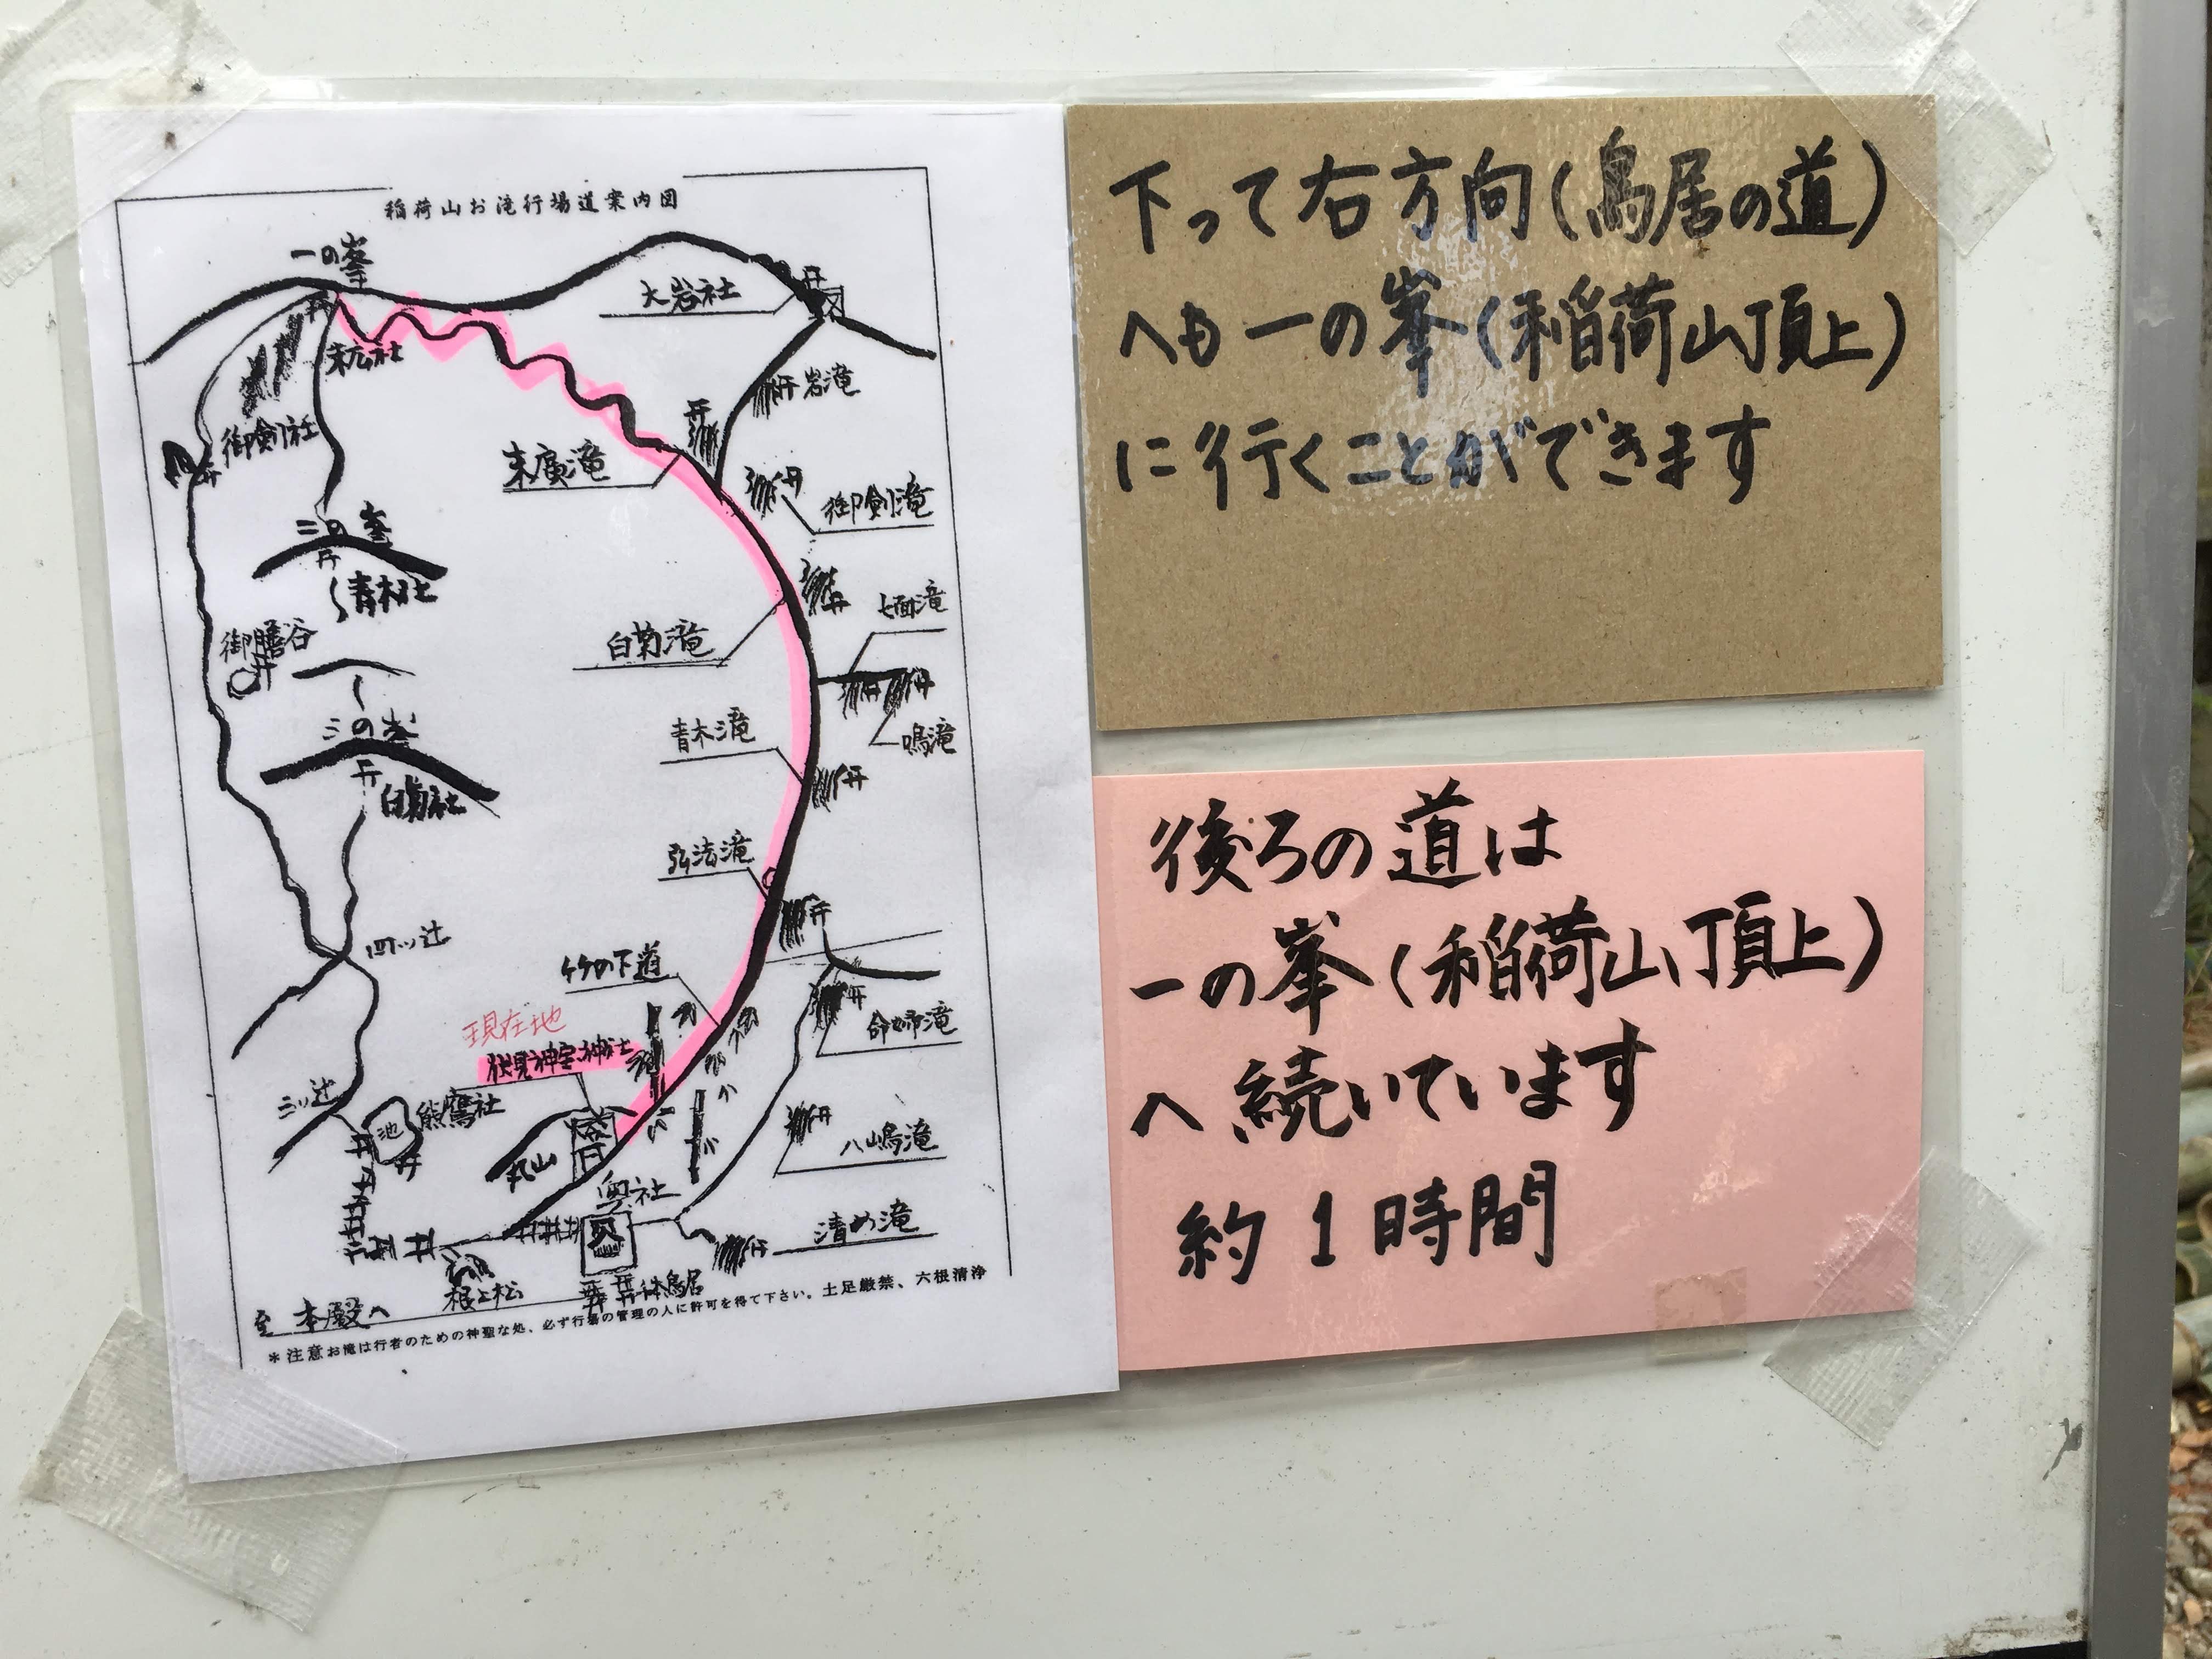 稲荷山お滝行場道案内図
一の峯
大岩社
末広社
岩滝
御劔社
末廣滝
御劔滝
二の峯
青木社
七面滝
御膳谷
白菊滝
三の峯
青木滝
鳴滝
白菊社
弘法滝
四ッ辻
竹の下道
現在地
伏見神宝神社
命婦滝
三ッ辻
池
熊鷹社
丸山
八嶋滝
奥社
清め滝
根上松
千本鳥居
至 本殿へ
＊注意お滝は行者のための神聖な処、必ず行場の管理の人に許可を得て下さい。土足厳禁、六根清浄
下って右方向(鳥居の道)
へも一の峯(稲荷山頂上)
に行くことができます
後ろの道は
一の峯(稲荷山頂上)
へ続いています
約1時間